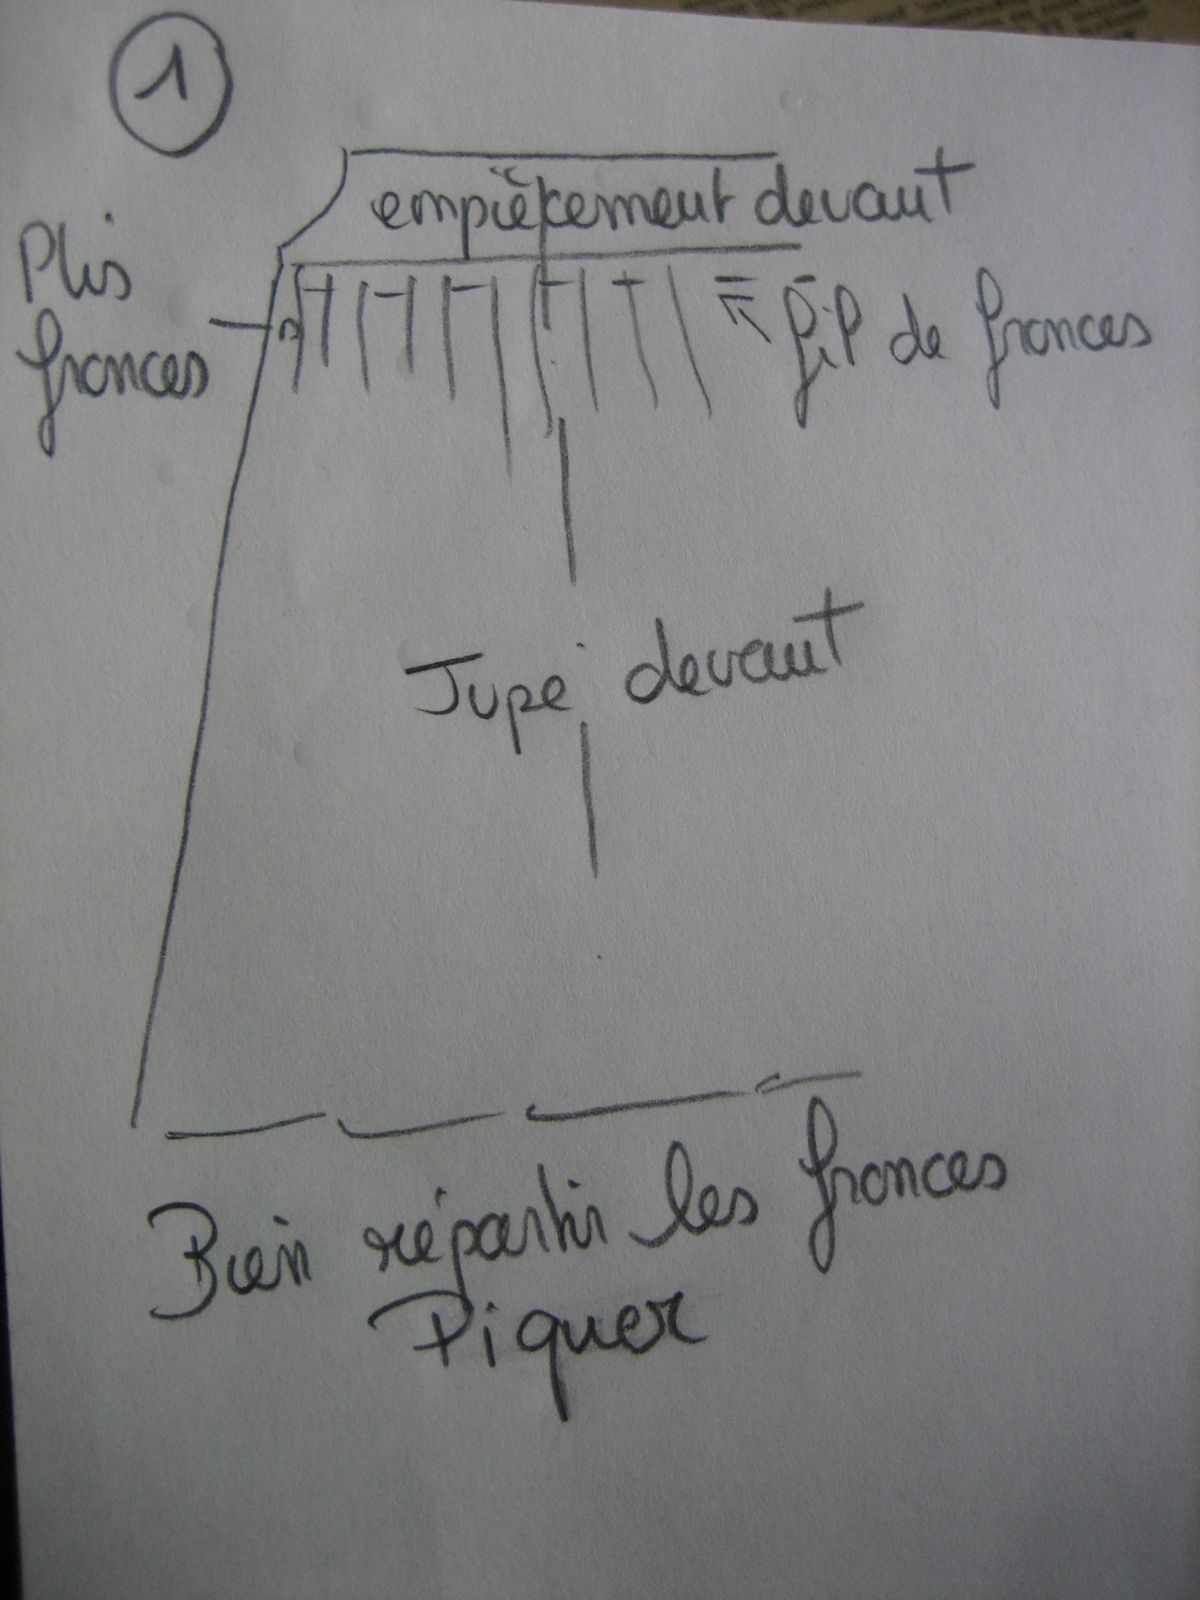 1
empiècement devant
Plis
fronces
de fronces
Jupe devant
Bien répartir les fronces
Piquer